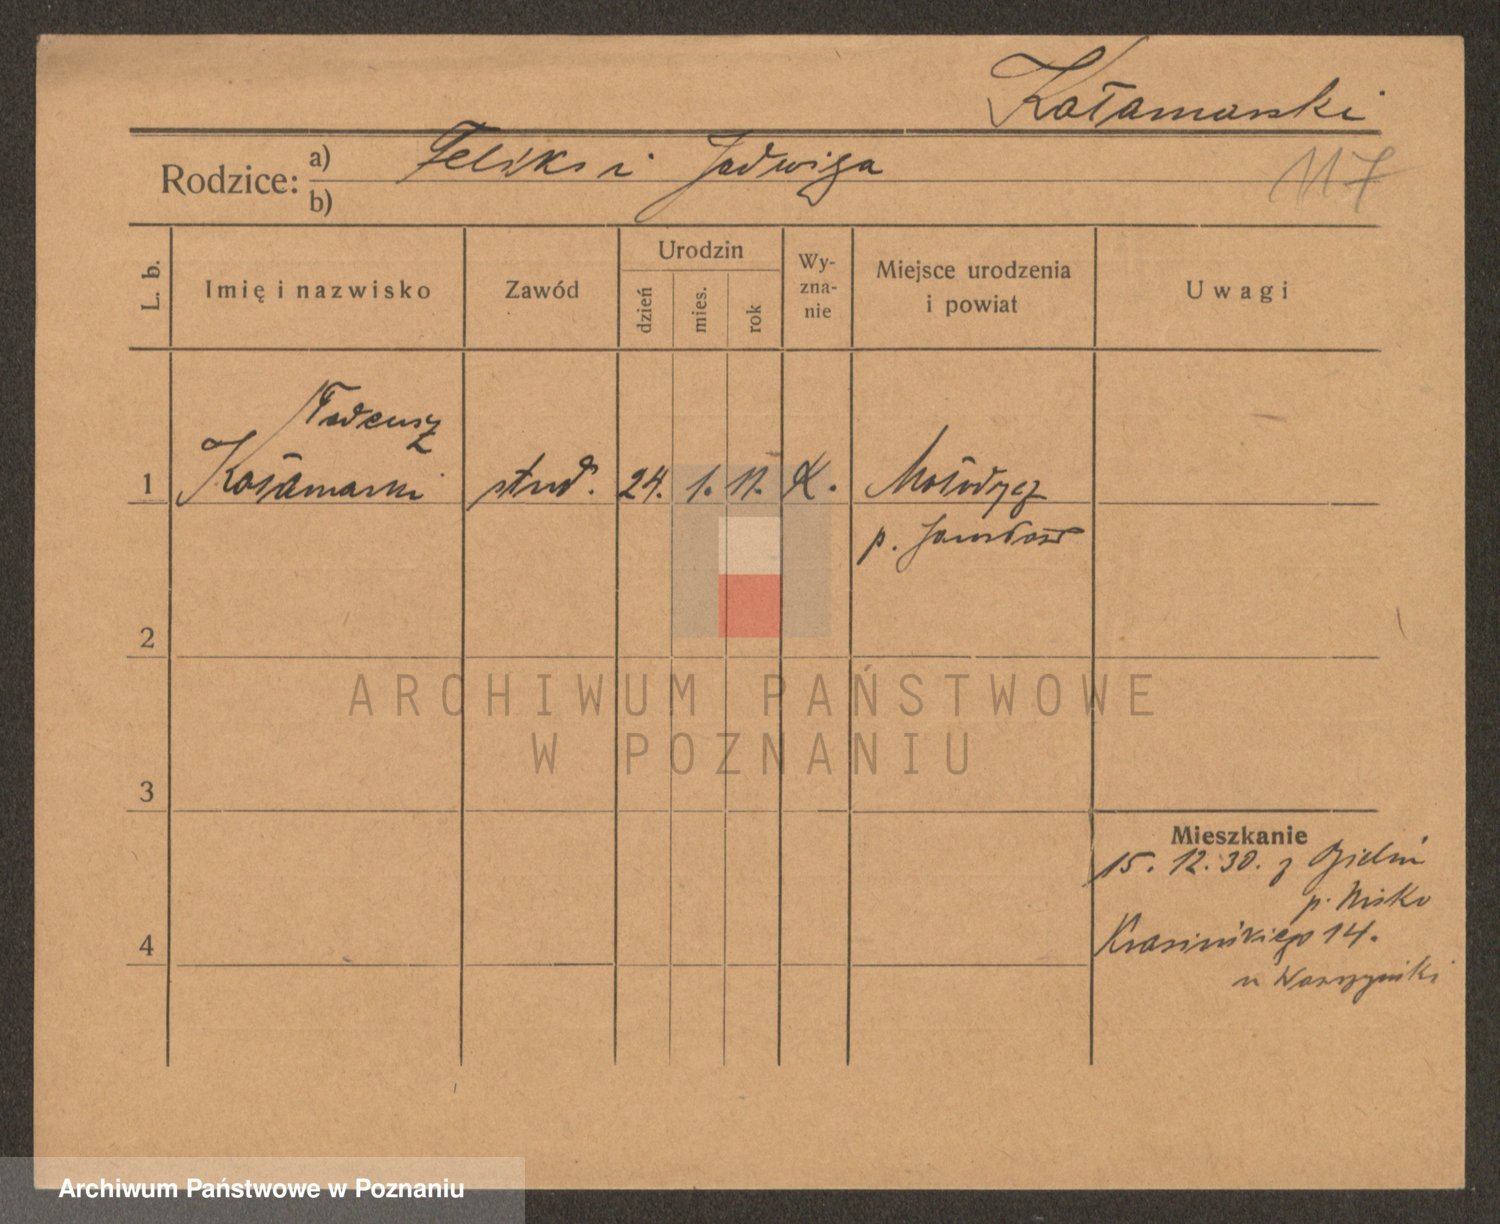 Kołamarski
Rodzice: a) Feliks i Jadwiga
b)
117
L. b.
Imię i nazwisko
Zawód
Urodzin
dzień
mies.
rok
Wy-
zna-
nie
Miejsce urodzenia
i powiat
Uwagi
Tadeusz
1 Kołamarski stud. 24. 1. 11. K. Mołodycz
p. Jarosław
2
3
4
Mieszkanie
15. 12. 30. z
p. Nisko
Krasińskiego 14.
u
ARCHIWUM PAŃSTWOWE
W POZNANIU
Archiwum Państwowe w Poznaniu